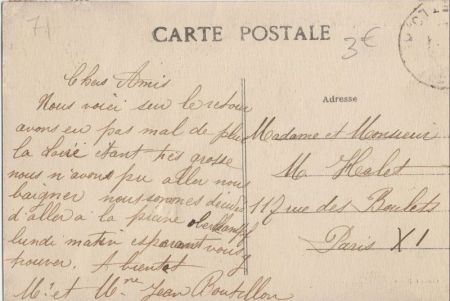 71
CARTE POSTALE
3€
Adresse
Chers Amis
Nous voici sur le retour
avons eu pas mal de pluie
la Loire étant très grosse
nous n'avons pu aller nous
baigner nous sommes décidés
d'aller à la piscine
lundi matin esperant vous y
trouver. A bientot
Mr et Mme Jean
Madame et Monsieur
M Halet
117 rue des Boulets
Paris XI